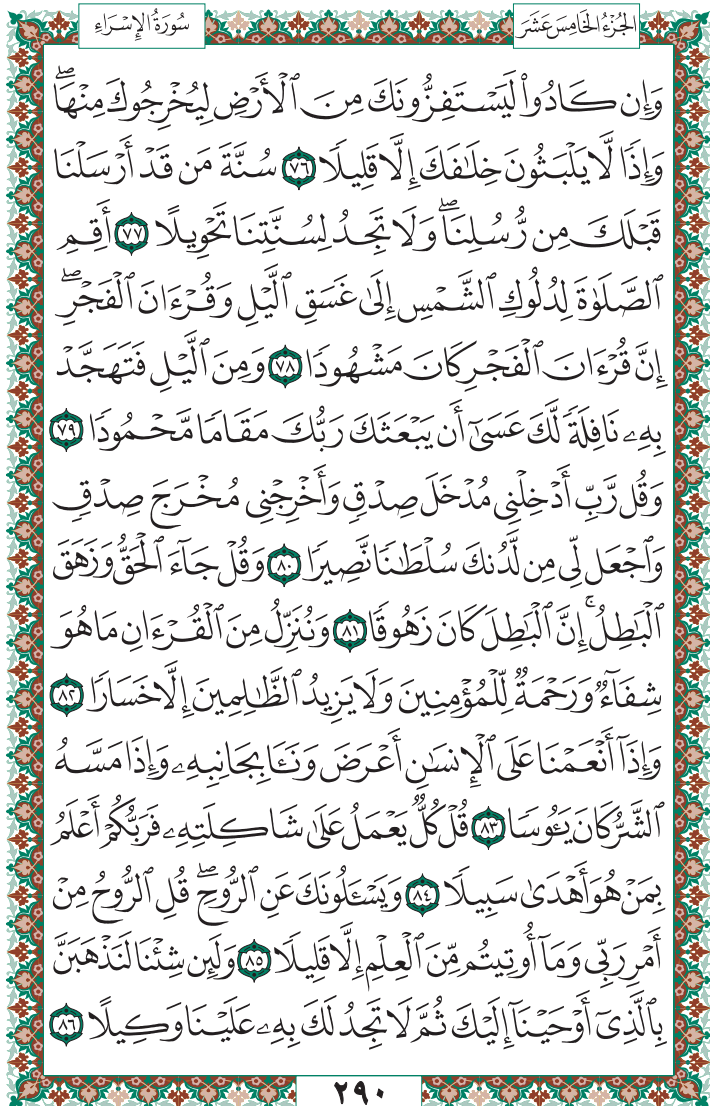 الجُزْءُ الخَامِسَ عَشَرَ
سُورَةُ الإِسْرَاءِ
وَإِن كَادُوا۟ لَيَسْتَفِزُّونَكَ مِنَ ٱلْأَرْضِ لِيُخْرِجُوكَ مِنْهَا ۖ
وَإِذًا لَّا يَلْبَثُونَ خِلَٰفَكَ إِلَّا قَلِيلًا ٧٦ سُنَّةَ مَن قَدْ أَرْسَلْنَا
قَبْلَكَ مِن رُّسُلِنَا ۖ وَلَا تَجِدُ لِسُنَّتِنَا تَحْوِيلًا ٧٧ أَقِمِ
ٱلصَّلَوٰةَ لِدُلُوكِ ٱلشَّمْسِ إِلَىٰ غَسَقِ ٱلَّيْلِ وَقُرْءَانَ ٱلْفَجْرِ ۖ
إِنَّ قُرْءَانَ ٱلْفَجْرِ كَانَ مَشْهُودًا ٧٨ وَمِنَ ٱلَّيْلِ فَتَهَجَّدْ
بِهِۦ نَافِلَةً لَّكَ عَسَىٰٓ أَن يَبْعَثَكَ رَبُّكَ مَقَامًا مَّحْمُودًا ٧٩
وَقُل رَّبِّ أَدْخِلْنِى مُدْخَلَ صِدْقٍ وَأَخْرِجْنِى مُخْرَجَ صِدْقٍ
وَٱجْعَل لِّى مِن لَّدُنكَ سُلْطَٰنًا نَّصِيرًا ٨٠ وَقُلْ جَآءَ ٱلْحَقُّ وَزَهَقَ
ٱلْبَٰطِلُ ۚ إِنَّ ٱلْبَٰطِلَ كَانَ زَهُوقًا ٨١ وَنُنَزِّلُ مِنَ ٱلْقُرْءَانِ مَا هُوَ
شِفَآءٌ وَرَحْمَةٌ لِّلْمُؤْمِنِينَ وَلَا يَزِيدُ ٱلظَّٰلِمِينَ إِلَّا خَسَارًا ٨٢
وَإِذَآ أَنْعَمْنَا عَلَى ٱلْإِنسَٰنِ أَعْرَضَ وَنَـَٔا بِجَانِبِهِۦ وَإِذَا مَسَّهُ
ٱلشَّرُّ كَانَ يَـُٔوسًا ٨٣ قُلْ كُلٌّ يَعْمَلُ عَلَىٰ شَاكِلَتِهِۦ فَرَبُّكُمْ أَعْلَمُ
بِمَنْ هُوَ أَهْدَىٰ سَبِيلًا ٨٤ وَيَسْـَٔلُونَكَ عَنِ ٱلرُّوحِ ۖ قُلِ ٱلرُّوحُ مِنْ
أَمْرِ رَبِّى وَمَآ أُوتِيتُم مِّنَ ٱلْعِلْمِ إِلَّا قَلِيلًا ٨٥ وَلَئِن شِئْنَا لَنَذْهَبَنَّ
بِٱلَّذِىٓ أَوْحَيْنَآ إِلَيْكَ ثُمَّ لَا تَجِدُ لَكَ بِهِۦ عَلَيْنَا وَكِيلًا ٨٦
٢٩٠